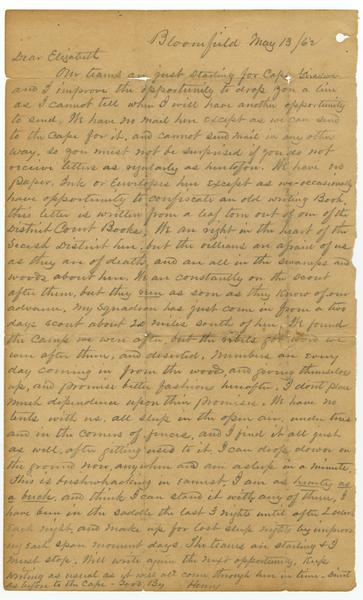 Bloomfield May 13/62
Dear Elizabeth
Our teams are just starting for Cape Girardeau
and I improve the opportunity to drop you a line
as I cannot tell when I will have another opportunity
to send. We have no mail here except as we can send
to the Cape for it, and cannot send mail in any other
way, so you must not be surprised if you do not
receive letters as regularly as heretofore. We have no
paper, Ink or Envelopes here except as we occasionally
have opportunity to confiscate an old writing Book,
this letter is written from a leaf torn out of one of the
District Court Books. We are right in the heart of the
Secesh District here, but the villians are afraid of us
as they are of death, and are all in the swamps and
woods about here. We are constantly on the scout
after them, but they run as soon as they know of our
advance. My Squadron has just come in from a two
days scout about 20 miles south of here. We found
the Camp we were after, but the rebles got we
were after them, and deserted. Numbers are every
day coming in from the woods, and giving themselves
up, and promise better fashions hereafter. I dont place
much dependence upon their promises. We have no
tents with us. all sleep in the open air, under trees
and in the corners of fences, and I find it all just
as well, after getting used to it. I can drop down on
the ground now, anywhere and am asleep in a minute.
This is bushwhacking in earnest. I am as hearty as
a buck, and think I can stand it with any of them. I
have been in the saddle the last 3 nights until after 2 oclock
each night, and make up for lost sleep nights by improv
ing each spare moment days. The teams are starting & I
must stop. Will write again the next opportunity. Keep
writing as usual as it will all come through here in time. Direct
as before to the Cape - Good By Henry